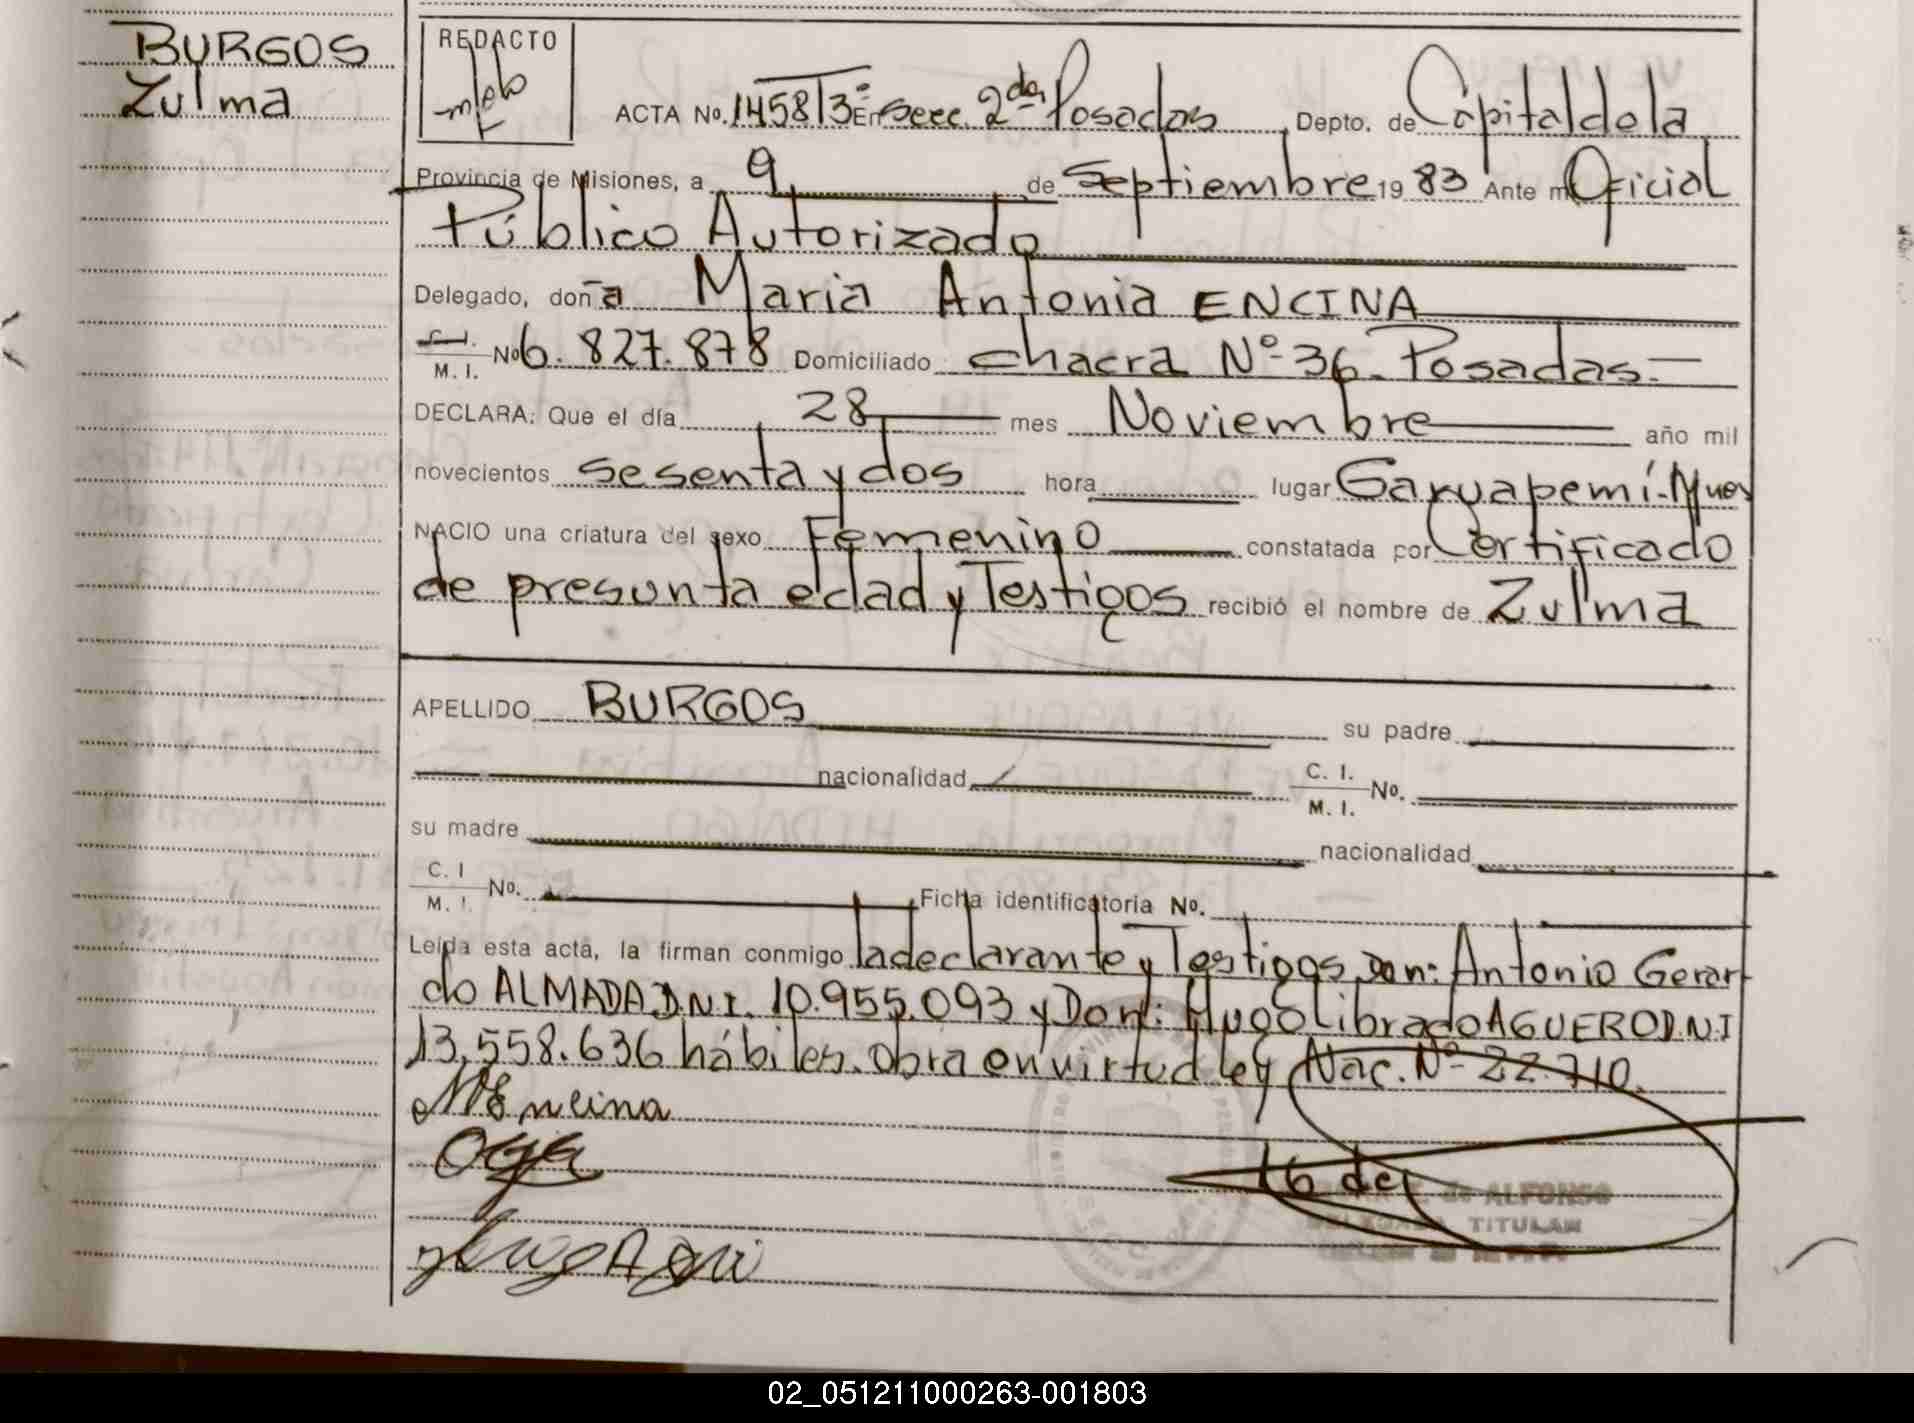 BURGOS
Zulma
REDACTO
ACTA No. 1458 T3º En Secc. 2da Posadas Depto. de Capital de la
Provincia de Misiones, a 9 de Septiembre 19 83 Ante mí Oficial
Público Autorizado
Delegado, doña Maria Antonia ENCINA
M. I. No 6.827.878 Domiciliado chacra Nº 36. Posadas.-
DECLARA: Que el día 28 mes Noviembre año mil
novecientos sesenta y dos hora lugar Garuapemí-Mnes
NACIO una criatura del sexo Femenino constatada por Certificado
de presunta edad y Testigos recibió el nombre de Zulma
APELLIDO BURGOS su padre
nacionalidad C. I. M. I. No.
su madre nacionalidad
C. I M. I. No. Ficha identificatoria No.
Leída esta acta, la firman conmigo la declarante y Testigos Don: Antonio Gerar
do ALMADA D.N.I. 10.955.093 y Don: Hugo Librado AGUERO D.N.I
13.558.636 hábiles. obra en virtud ley Nac. Nº 22.710.
MEncina
de ALFONSO
TITULAR
02_051211000263-001803